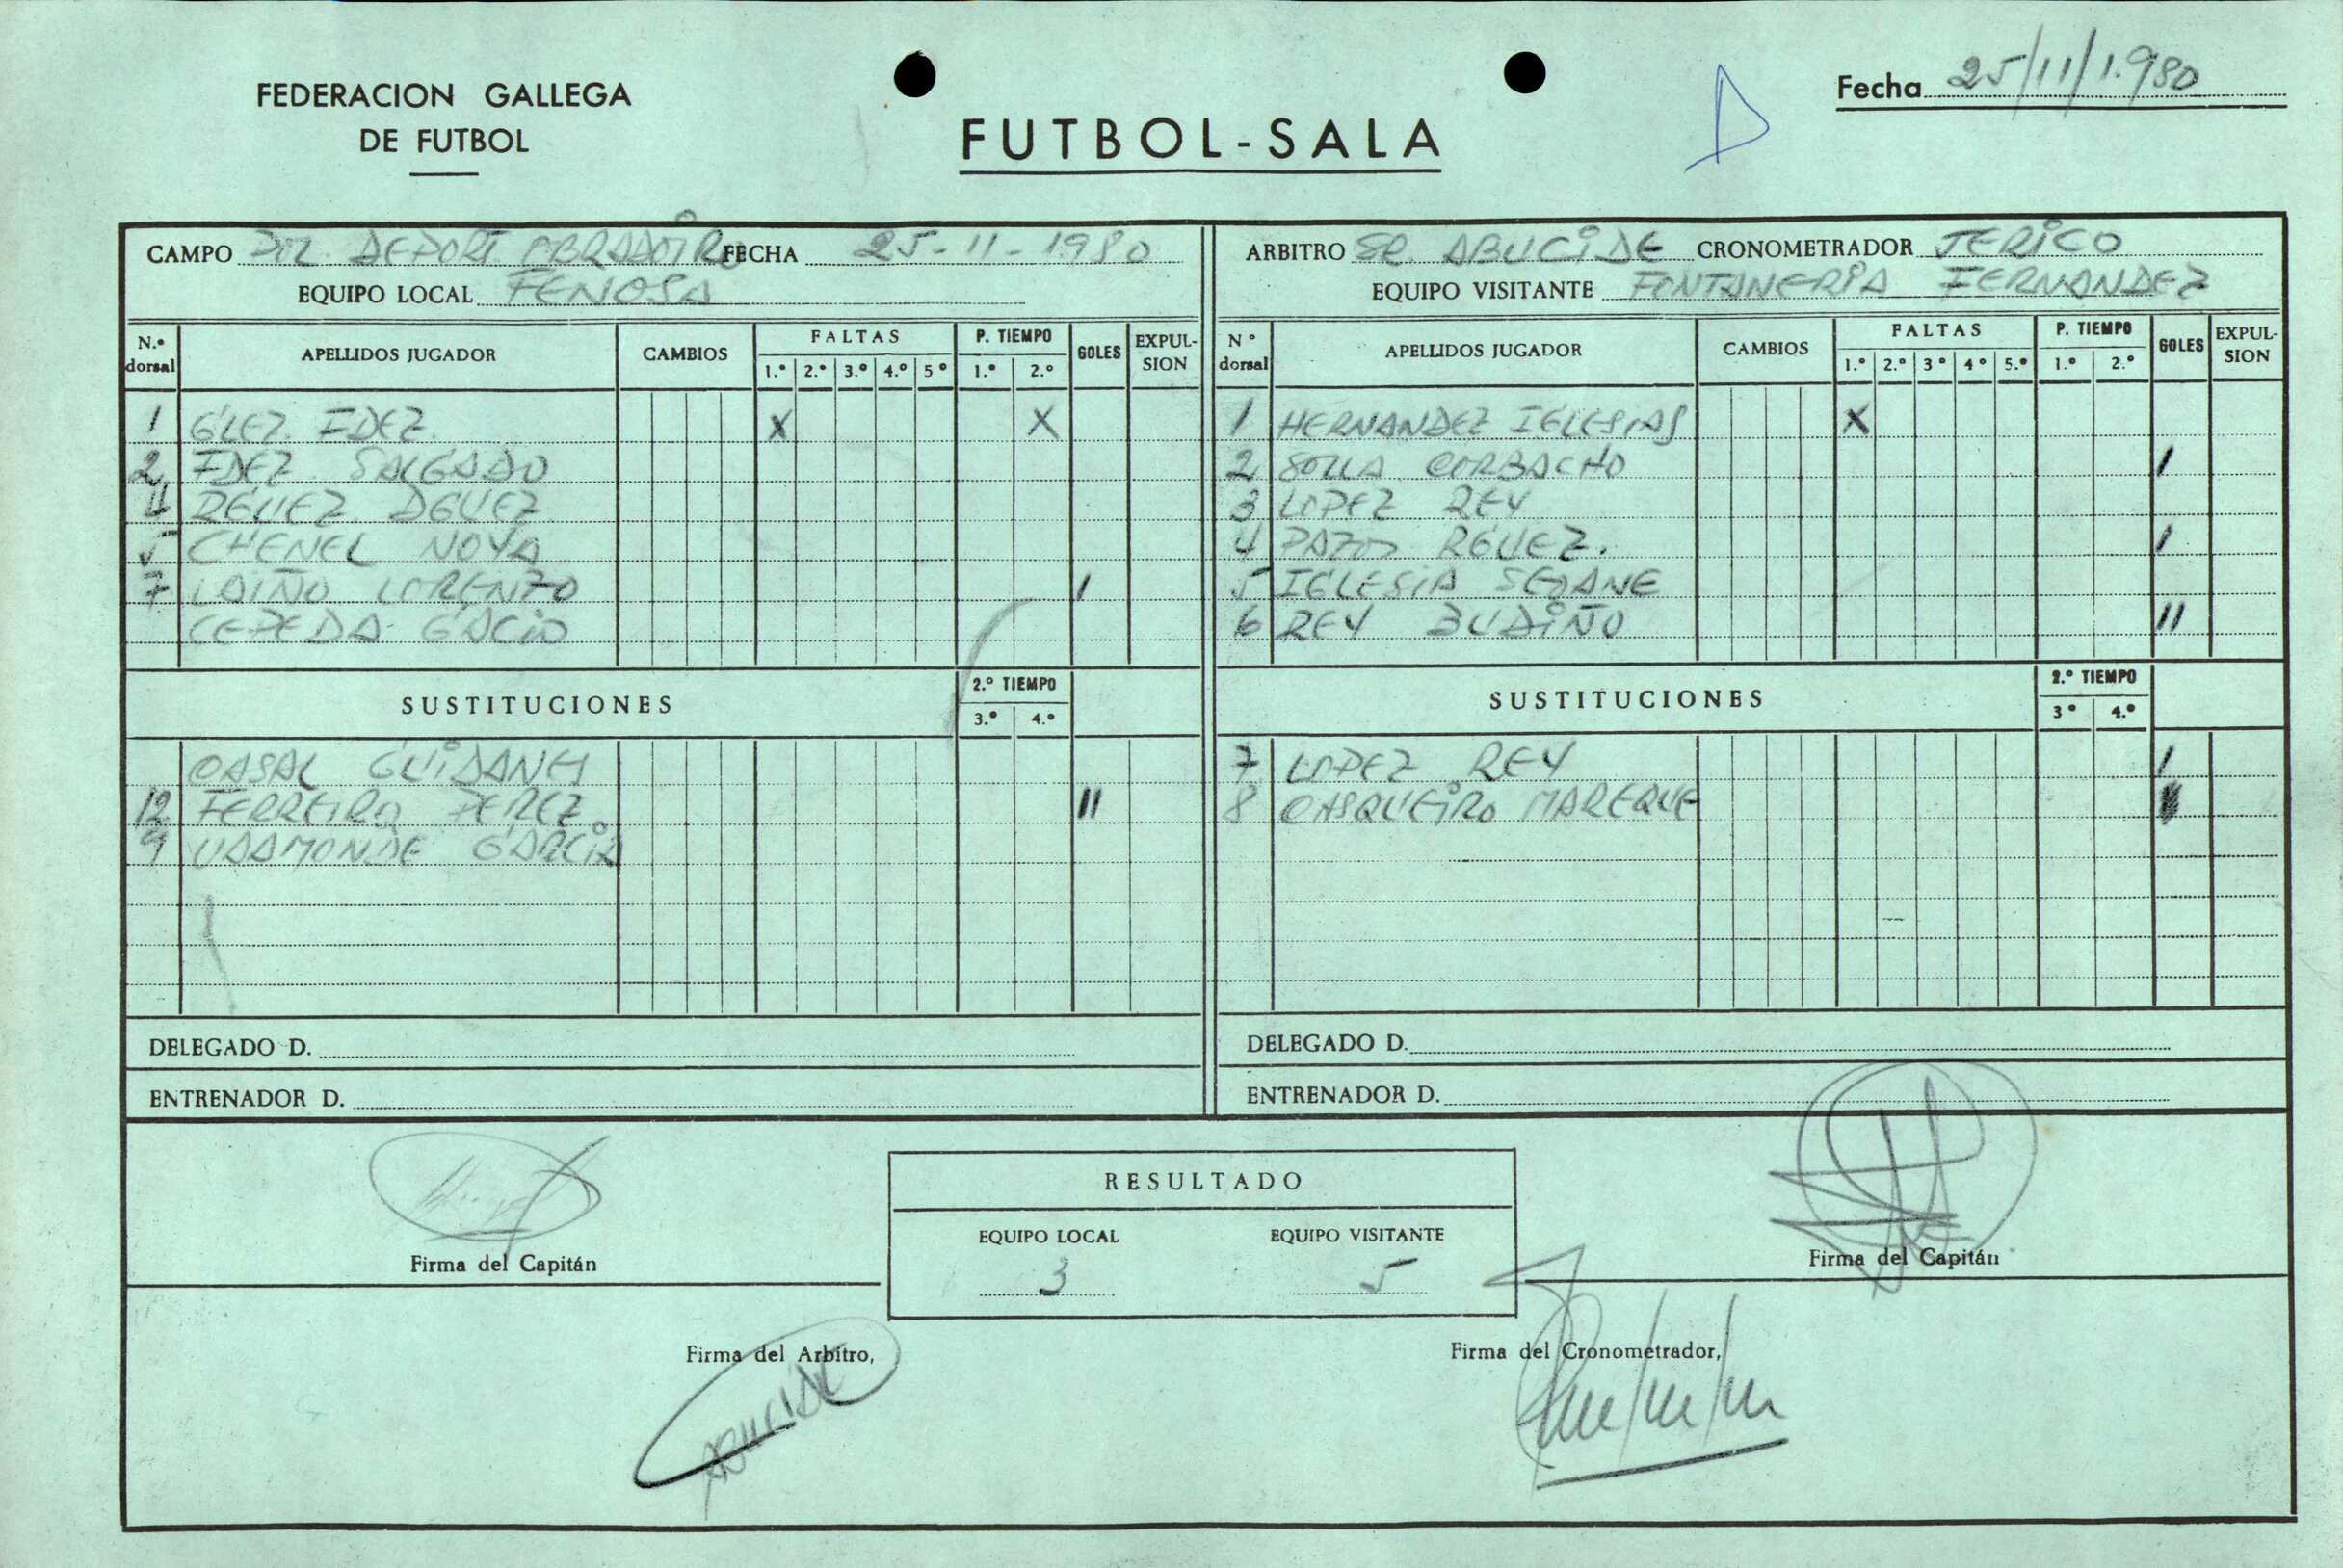 FEDERACION GALLEGA
DE FUTBOL
FUTBOL-SALA
Fecha 25/11/1.980
CAMPO POL. DEPORT. OBRADOIRO FECHA 25-11-1980
EQUIPO LOCAL FENOSA
N.º dorsal APELLIDOS JUGADOR CAMBIOS FALTAS 1.º 2.º 3.º 4.º 5º P. TIEMPO 1.º 2.º GOLES EXPULSION
1 GLEZ. FDEZ. X X
2 FDEZ. SALGADO
4 RGUEZ. DGUEZ.
5 CHENEL NOYA
7 LAIÑO LORENZO I
CEPEDA GACIO
SUSTITUCIONES 2.º TIEMPO 3.º 4.º
CASAL
12 FERREIRO PEREZ II
9 VAAMONDE GARCIA
DELEGADO D.
ENTRENADOR D.
ARBITRO SR. ABUCIDE CRONOMETRADOR JERICO
EQUIPO VISITANTE FONTANERIA FERNANDEZ
Nº dorsal APELLIDOS JUGADOR CAMBIOS FALTAS 1.º 2.º 3º 4º 5.º P. TIEMPO 1.º 2.º GOLES EXPUL-SION
1 HERNANDEZ IGLESIAS X
2 SOLLA CORBACHO I
3 LOPEZ REY
4 PAZOS RGUEZ. I
5 IGLESIA SEOANE
6 REY BUDIÑO II
SUSTITUCIONES 2.º TIEMPO 3º 4.º
7 LOPEZ REY I
8 CASQUEIRO MAREQUE
DELEGADO D.
ENTRENADOR D.
Firma del Capitán
RESULTADO
EQUIPO LOCAL EQUIPO VISITANTE
3 5
Firma del Capitán
Firma del Arbitro,
ABUCIDE
Firma del Cronometrador,